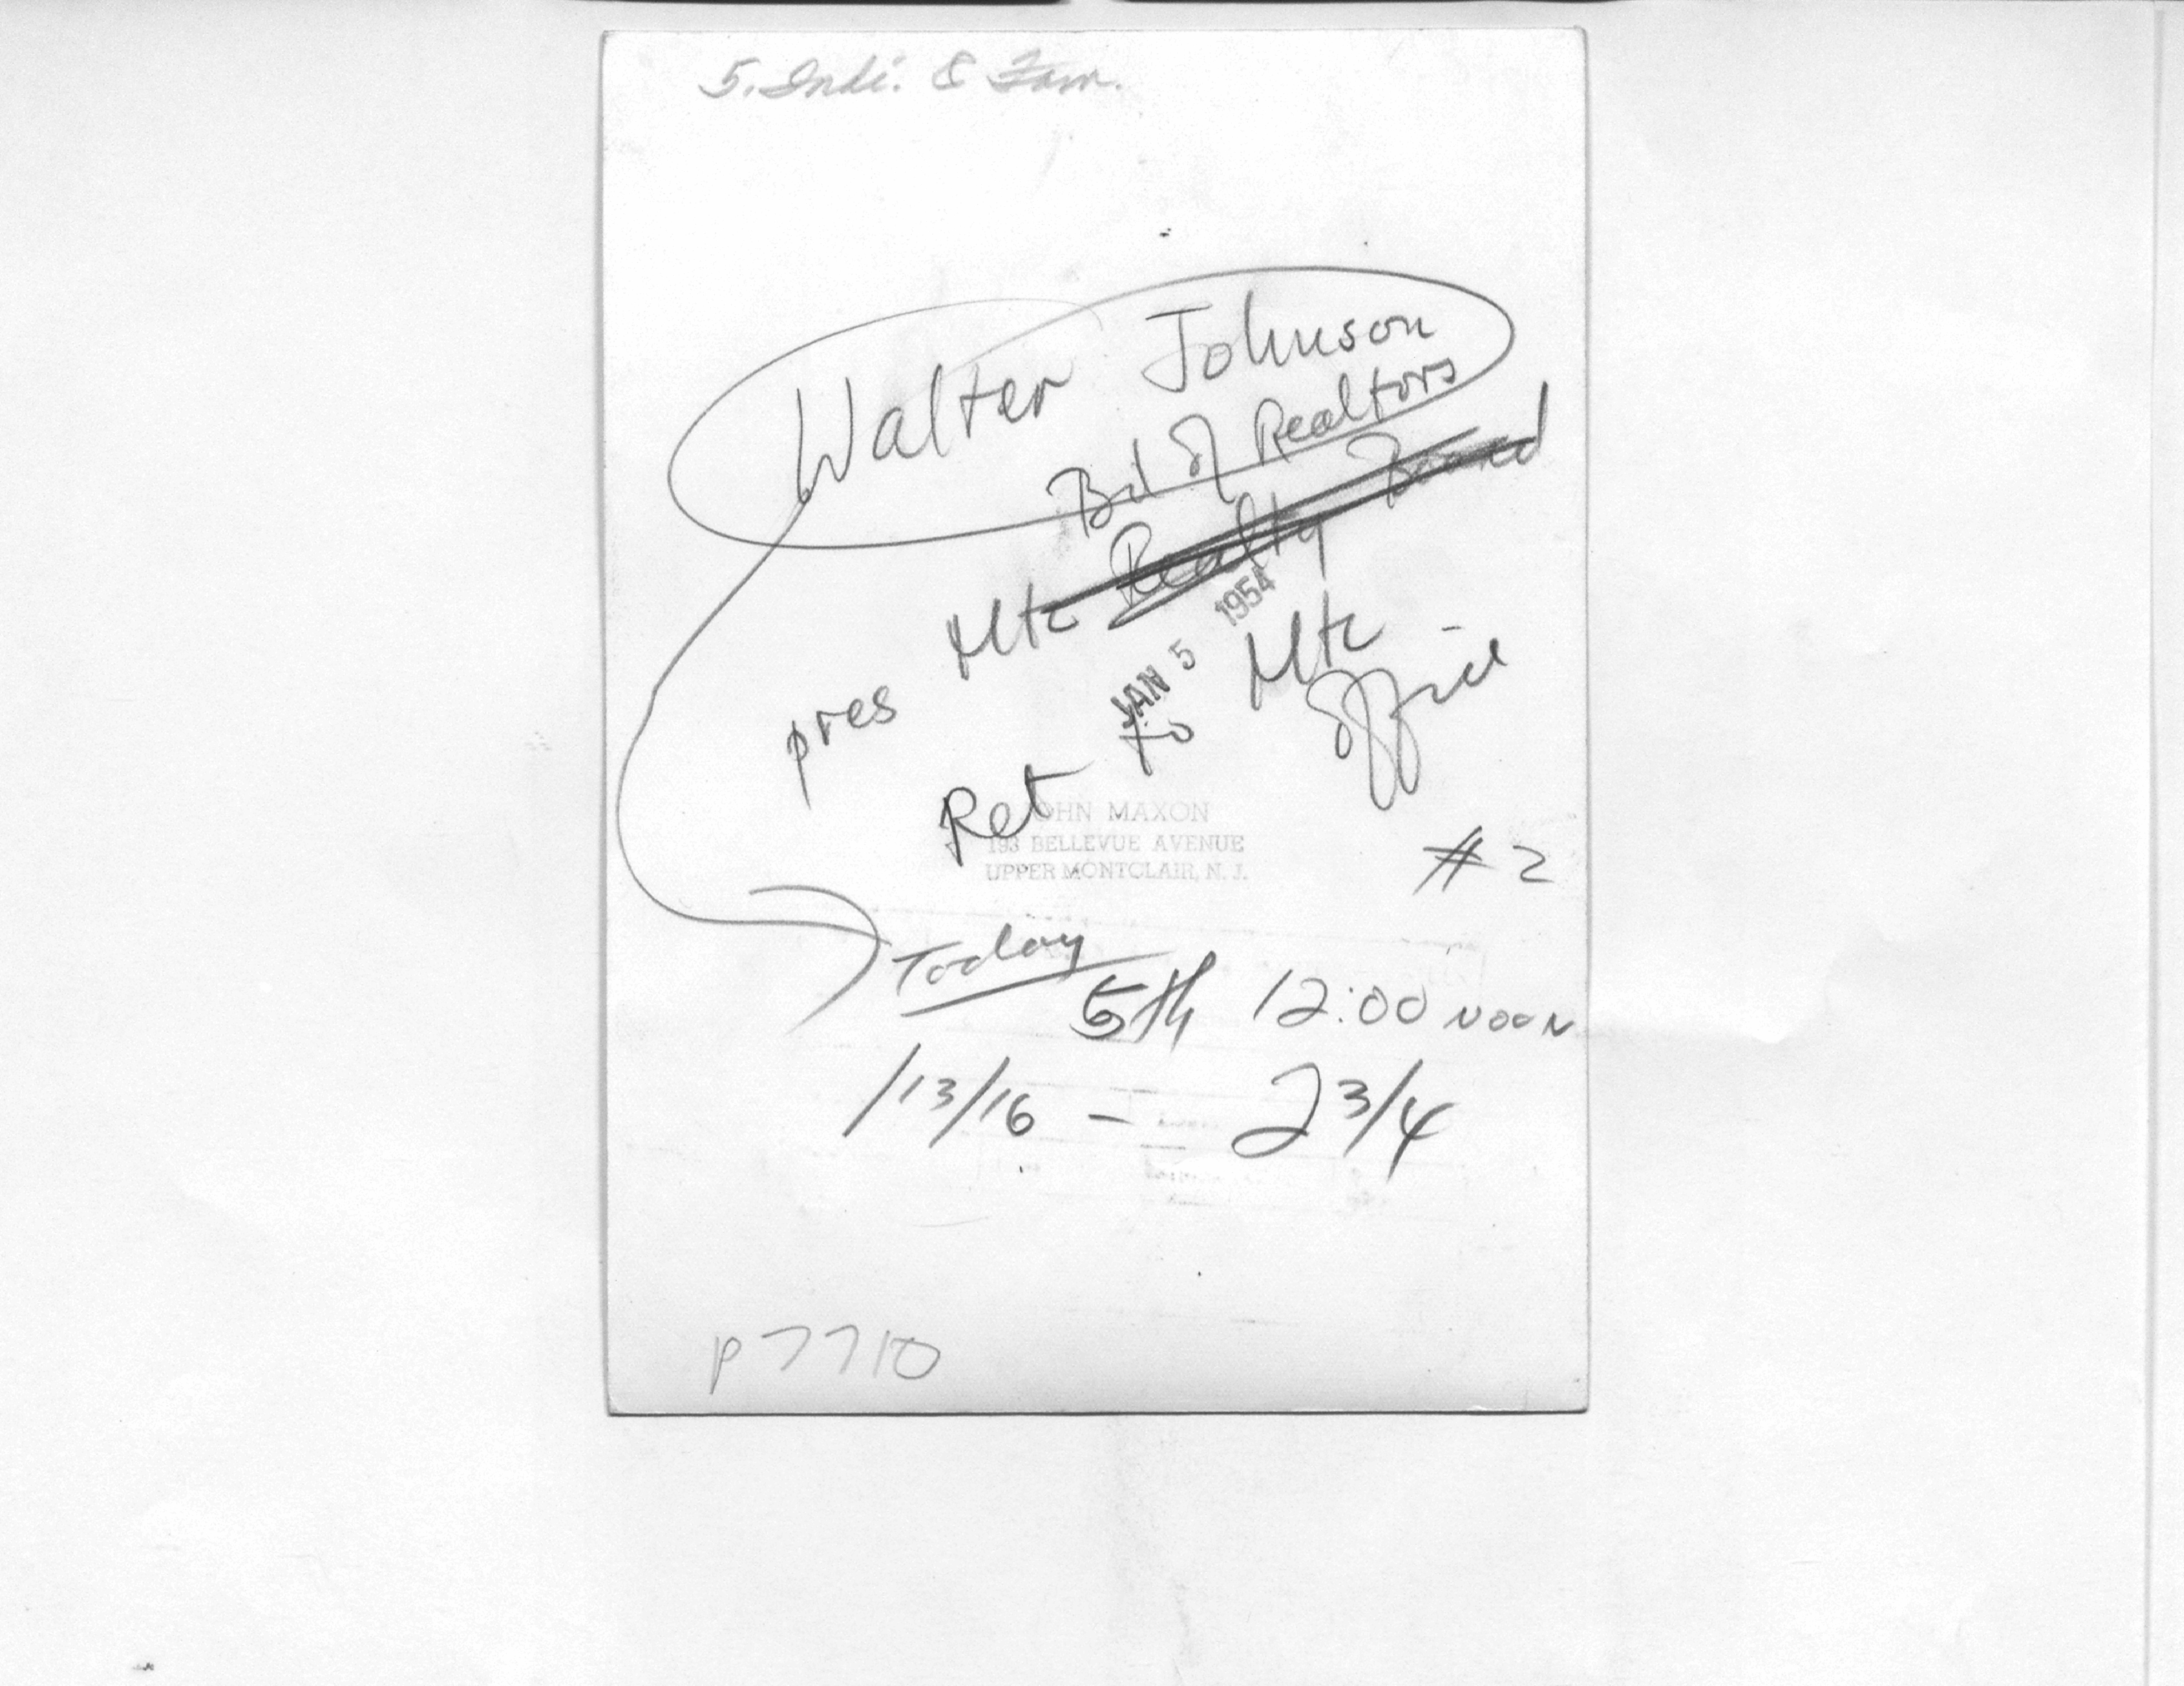 5. Indi. & Fam.
Walter Johnson
Bd of Realtors
pres Mtc Realty Board
JAN 5 1954
Ret to Mtc Office
JOHN MAXON
193 BELLEVUE AVENUE
UPPER MONTCLAIR, N. J.
# 2
Today
5th 12:00 NOON
/13/16 - 2 3/4
P7710